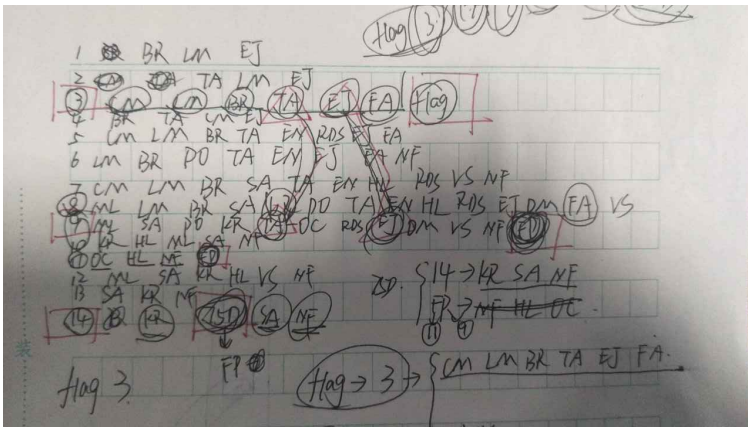 Hag 3
1 BR LM EJ
2 TA LM EJ
3 CM LM BR TA EJ FA Hag
4 BR TA LM EJ
5 CM LM BR TA EN RDS EJ FA
6 LM BR PO TA EN EJ FA NF
7 CM LM BR SA TA EN HL RDS VS NF
8 ML LM BR SA KR PO TA EN HL RDS EJ DM FA VS
9 ML SA PO KR TA OC RDS EJ DM VS NF
10 KR HL ML SA NF
11 OC HL NF
12 ML SA KR HL VS NF
13 SA KR NF
14 KR ISD SA NF
14 → KR SA NF
NF HL OC
11 9
FP
Hag 3
Hag → 3 → CM LM BR TA EJ FA.
装